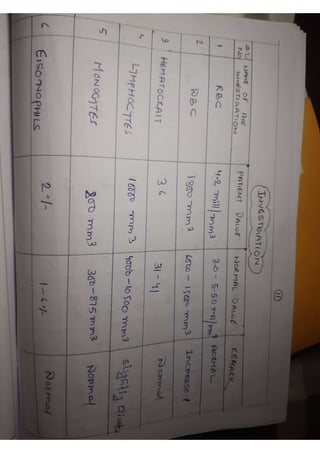 11
INVESTIGATION
SL NO NAME OF THE INVESTIGATION PATIENT VALUE NORMAL VALUE REMARK
1 RBC 4.2 mill/mm3 3.0-5.50 mill/mm3 NORMAL
2 WBC 1800 mm3 Increase
3 HEMATOCRAIT 36 31-41 Normal
4 LYMPHOCYTES 4000-10500 mm3 Slightly
5 MONOCYTES 800 mm3 300-875 mm3 Normal
6 EISONOPHILS 2% 1-6% Normal